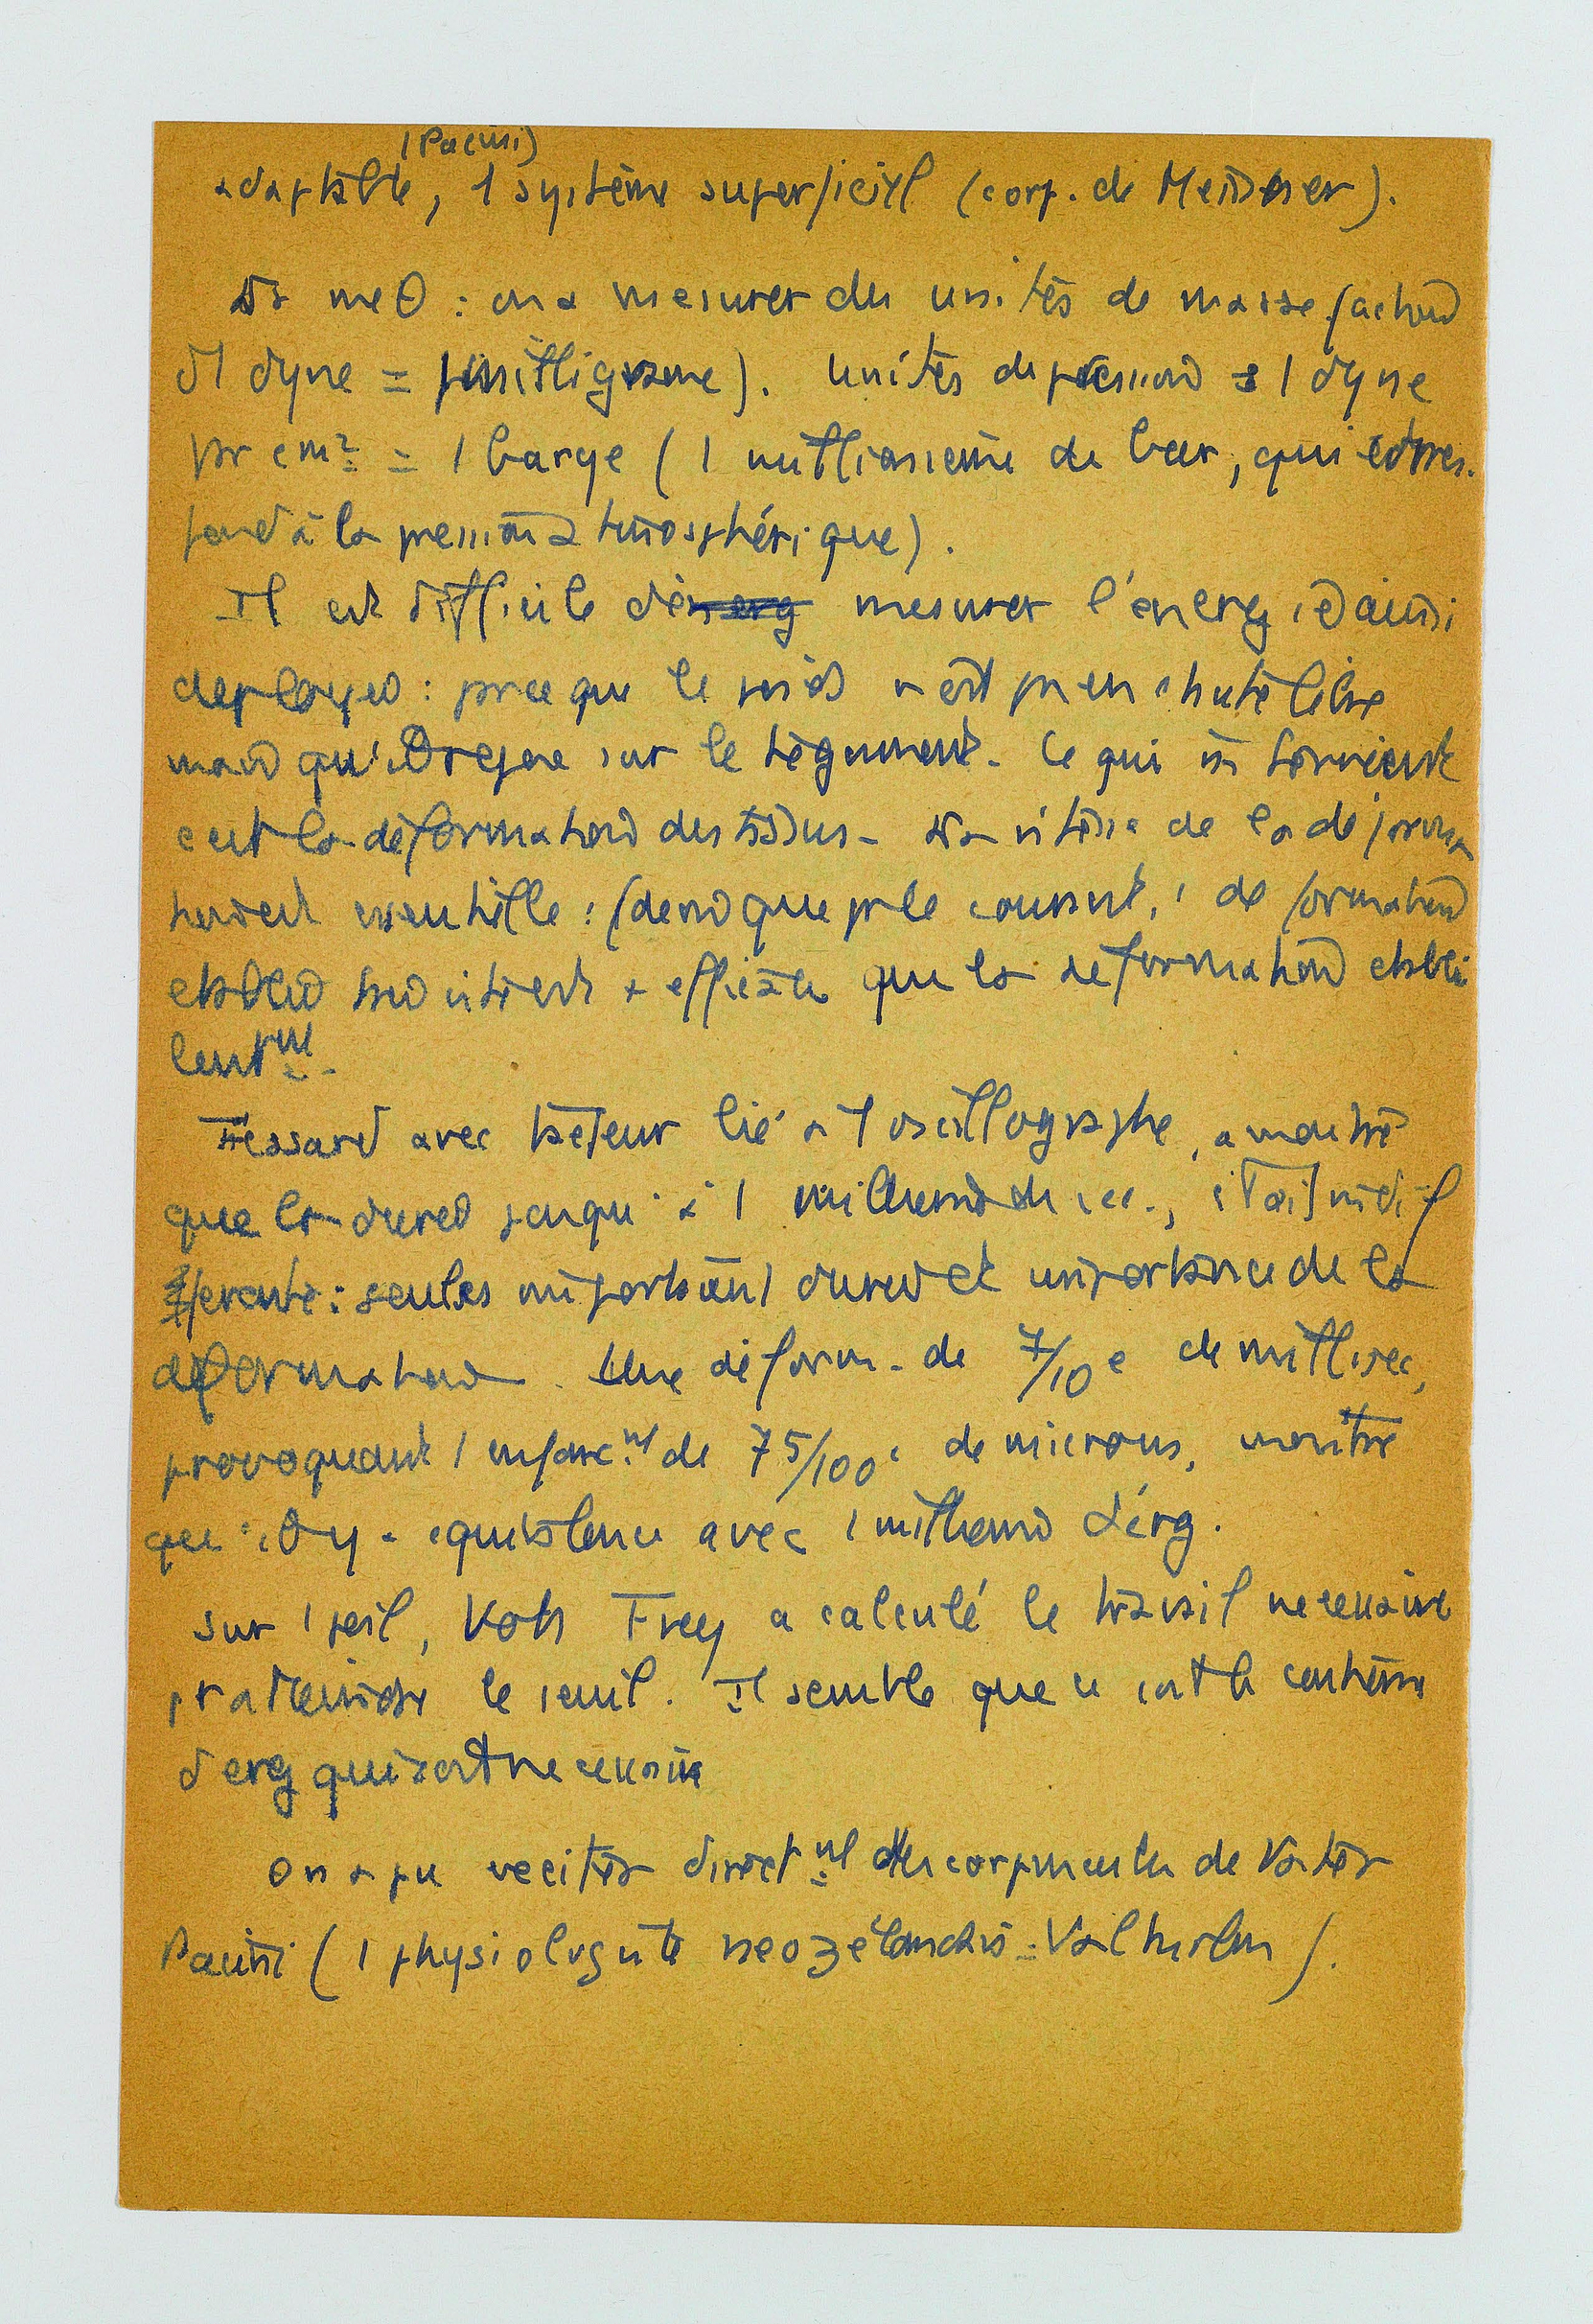 (Pacini)
adaptable, 1 système superficiel (corp. de Meissner).
on a mesurer des unités de masse (action
d'1 dyne = milligramme). Unités de pression = 1 dyne
pr cm² = 1 barye (1 millionième de bar, qui corres-
pond à la pression atmosphérique).
Il est difficile de mesurer l'énergie ainsi
deployee : parce que le poids n'est pas en chute libre
mais qu'il repose sur le tégument. Ce qui intervient
c'est la déformation des tissus - La vitesse de la déforma
tion est essentielle : de que pr le courant, 1 déformation
etablie est + efficace que la déformation etablie
lentmt.
Fessard avec lié à 1 oscillographe, a montré
que la duree jusqu'à 1 de sec., était indif
ferente : seules importaient duree et importance de la
déformation. Une déform. de 7/10e de millisec,
provoquant 1 enfoncmt de 75/100e de microns, montre
qu'il y a equivalence avec 1 d'erg.
Sur 1 poil, Von Frey a calculé le travail necessaire
pr atteindre le seuil. Il semble que ce soit le centième
d'erg qui soit necessaire
On a pu exciter directmt des corpuscules de Vater
Pacini (1 physiologiste neozélandais =